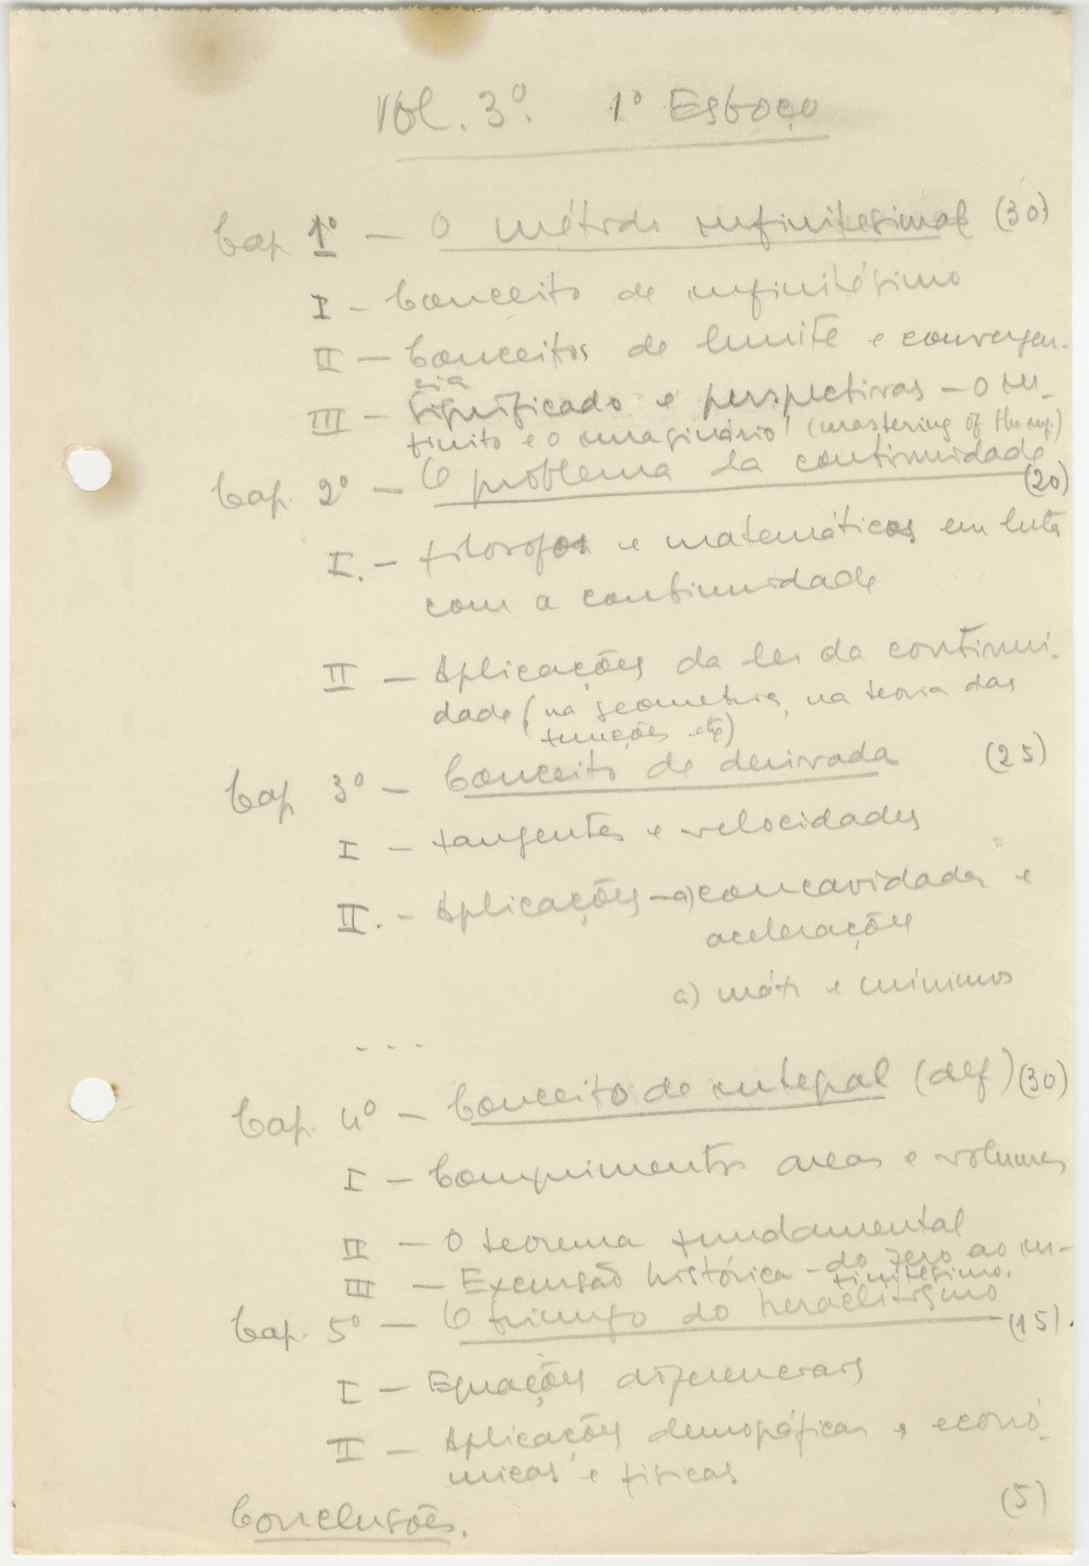 Vol. 3º. 1º Esboço
Cap 1º — O método infinitesimal (30)
I - Conceito de infinitésimo
II — Conceitos de limite e convergen-
cia
III — Significado e perspectivas — O in-
finito e o imaginário (mastering of the inf.)
Cap. 2º — O problema da continuidade
(20)
I. — filosofos e matemáticos em luta
com a continuidade
II — Aplicações da lei da continui-
dade (na geometria, na teoria das
funções etc)
Cap 3º — Conceito de derivada (25)
I — tangentes e velocidades
II. - Aplicações — a) concavidades e
acelerações
a) máx e mínimos
...
Cap. 4º — Conceito de integral (def) (30)
I — Comprimentos areas e volumes
II — O teorema fundamental
III — Excursão histórica - do zero ao in-
finitésimo.
Cap. 5º — O triunfo do heraclitismo (15).
I — Equações diferenciais
II — Aplicações demográficas, econó-
micas e físicas
Conclusões. (5)